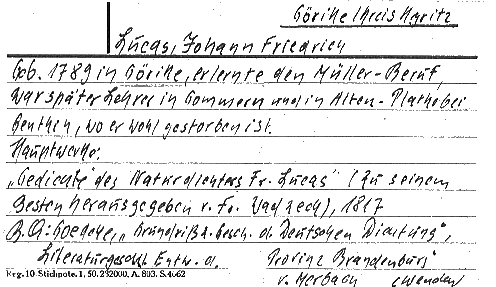 Görike Kreis Kyritz
Lucas, Johann Friedrich
Geb. 1789 in Görike, erlernte den Müller-Beruf,
war später Lehrer in Gommern und in Alten-Plathe bei
Genthin, wo er wohl gestorben ist.
Hauptwerke:
„Gedichte des Naturdichters Fr. Lucas" (Zu seinem
Besten herausgegeben v. Fr. Wadzeck), 1817
B.A: Goedeke, „Grundriß z. Gesch. d. Deutschen Dichtung",
Literaturgeschl. Entw. d. Provinz Brandenburg"
v. Herbach (Wenden)
Krg. 10 Stichnote. 1, 50. 232000. A. 803. S. 4662